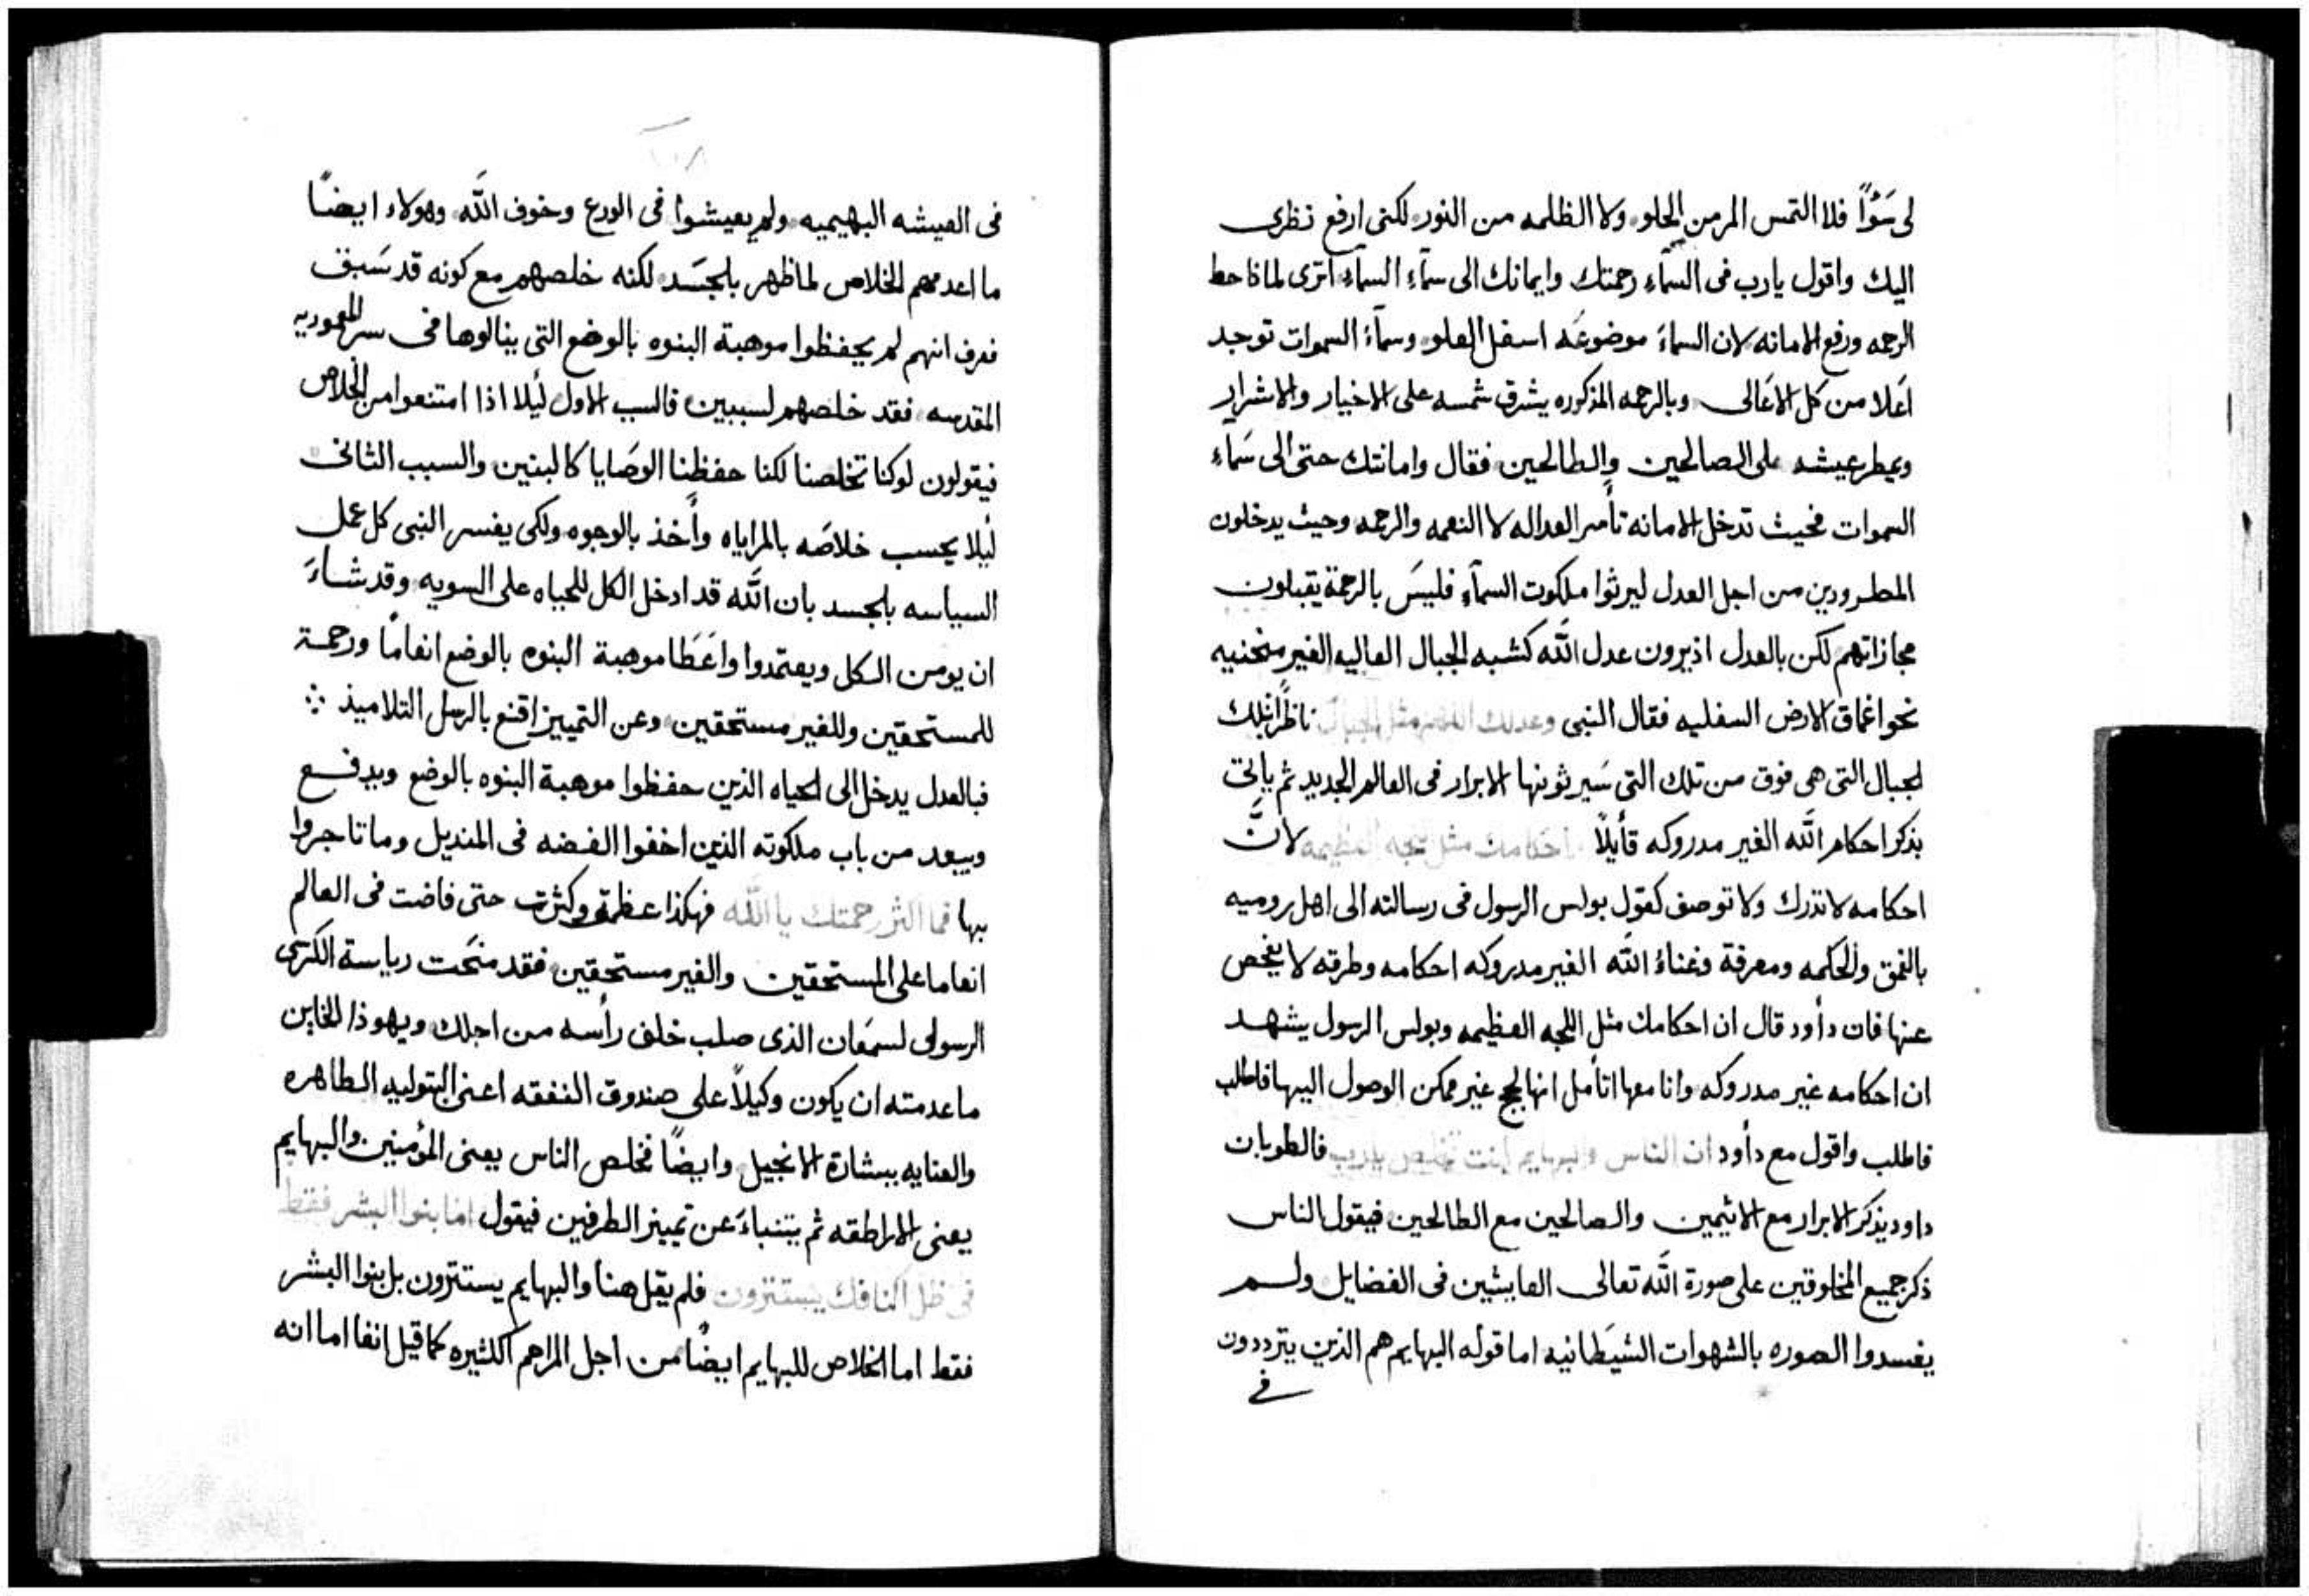 لى سَوًا فلا التمس المر من الحلو ولا الظلمه من النور لكنى ارفع نظرى
اليك واقول يارب فى السمآءِ رحمتك وايمانك الى سمآءِ السمآءِ اترى لماذا حط
الرحمه ورفع الامانه لان السمآءَ موضوعَه اسفل العلو وسمآءُ السموات توجد
اعَلا من كل الاعَالى وبالرحمه المذكوره يشرق شمسه على الاخيار والاشرار
ويمطر عيشه على الصالحين والطالحين فقال وامانتك حتى الى سَمآءِ
السموات فحيث تدخل الامانه تأمر العداله لا النعمه والرحمه وحيث يدخلون
المطرودين من اجل العدل ليرثوا ملكوت السمآءِ فليسَ بالرحمة يقبلون
مجازاتهم لكن بالعدل اذ يرون عدل الله كشبه الجبال العاليه الغير منحنيه
نحو اغماق الارض السفليه فقال النبى وعدلك اللهم مثل الجبال ناظرًا تلك
الجبال التى هى فوق من تلك التى سَيرثونها الابرار فى العالم الجديد ثم ياتى
بذكر احكام الله الغير مدروكه قأيلاً احكامك مثل لجه العظيمه لانَّ
احكامه لا تدرك ولا توصف كقول بولس الرسول فى رسالته الى اهل روميه
بالغمق والحكمه ومعرفة وغناءُ الله الغير مدروكه احكامه وطرقه لا يفحص
عنها فان دأود قال ان احكامك مثل اللجه العظيمه وبولس الرسول يشهد
ان احكامه غير مدروكه وانا معها اتأمل انها لجج غير ممكن الوصول اليها فاطلب
فاطلب واقول مع دأود ان الناس والبهايم انت تخلص يارب فالطوبان
داود يذكر الابرار مع الاثيمين والصالحين مع الطالحين فيقول الناس
ذكر جميع المخلوقين على صورة الله تعالى العايشين فى الفضايل ولم
يفسدوا الصوره بالشهوات الشيَطانيه اما قوله البهايم هم الذين يترددون
فى
فى العيشه البهيميه ولم يعيشوا فى الورع وخوف الله وهولاء ايضًا
ما اعدمهم الخلاص لما ظهر بلجسَد لكنه خلصهم مع كونه قد سَبق
فعرف انهم لم يحفظوا موهبة البنوه بالوضع التى ينالوها فى سر المعموديه
المقدسه فقد خلصهم لسببين فالسبب الاول ليلا اذا امتنعوا من الخلاص
فيقولون لو كنا تخلصنا لكنا حفظنا الوصَايا كالبنين والسبب الثانى
ليلا يحسب خلاصَه بالمراياه وأخذ بالوجوه ولكى يفسر النبى كل عمل
السياسه بلجسد بان الله قد ادخل الكل للحياه على السويه وقد شاءَ
ان يومن الكل ويعتمدوا واعَطَا موهبة البنوه بالوضع انعامًا ورحمة
للمستحقين وللغير مستحقين وعن التمييز اقنع بالرسل التلاميذ ∴
فبالعدل يدخل الى الحياه الذين حفظوا موهبة البنوه بالوضع ويدفع
ويبعد من باب ملكوته الذين اخفوا الفضه فى المنديل وما تاجروا
بها فما اكثر رحمتك يا الله فهكذا عظمة وكثرت حتى فاضت فى العالم
انعاما على المستحقين والغير مستحقين فقد منحَت رياسة الكرسى
الرسولى لسمعَان الذى صلب خلف رأسه من اجلك ويهوذا الخاين
ما عدمته ان يكون وكيلاً على صندوق النفقه اعنى البتوليه الطاهره
والعنايه ببشارة الانجيل وايضًا فخلص الناس يعنى المؤمنين والبهايم
يعنى الاراطقه ثم يتنباءَ عن تمييز الطرفين فيقول اما بنوا البشر فقط
فى ظل اكنافك يستترون فلم يقل هنا والبهايم يستترون بل بنوا البشر
فقط اما الخلاص للبهايم ايضًا من اجل المراحم الكثيره كما قيل انفا اما انه